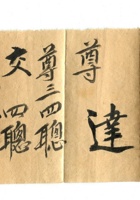 尊 達
尊三四聰
交 四聰